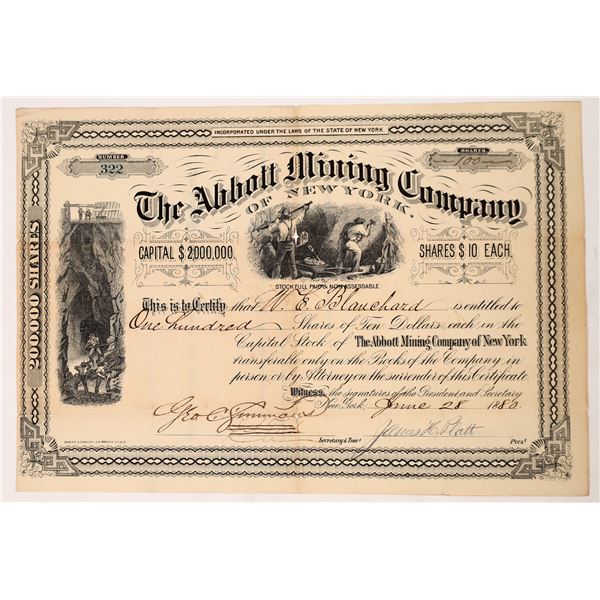 INCORPORATED UNDER THE LAWS OF THE STATE OF NEW YORK
NUMBER
322
SHARES
100
The Abbott Mining Company
OF NEW YORK.
CAPITAL $2,000,000.
SHARES $10 EACH.
STOCK FULL PAID & NON ASSESSABLE
200,000 SHARES
This is to Certify that W. E. Blanchard is entitled to
One hundred Shares of Ten Dollars each in the
Capital Stock of The Abbott Mining Company of New York
transferable only on the Books of the Company in
person or by Attorney on the surrender of this Certificate.
Witness, the signatures of the President and Secretary
New York, June 28 1880.
Geo C Simmons
Secretary & Treas.
James H. Platt
Prest.